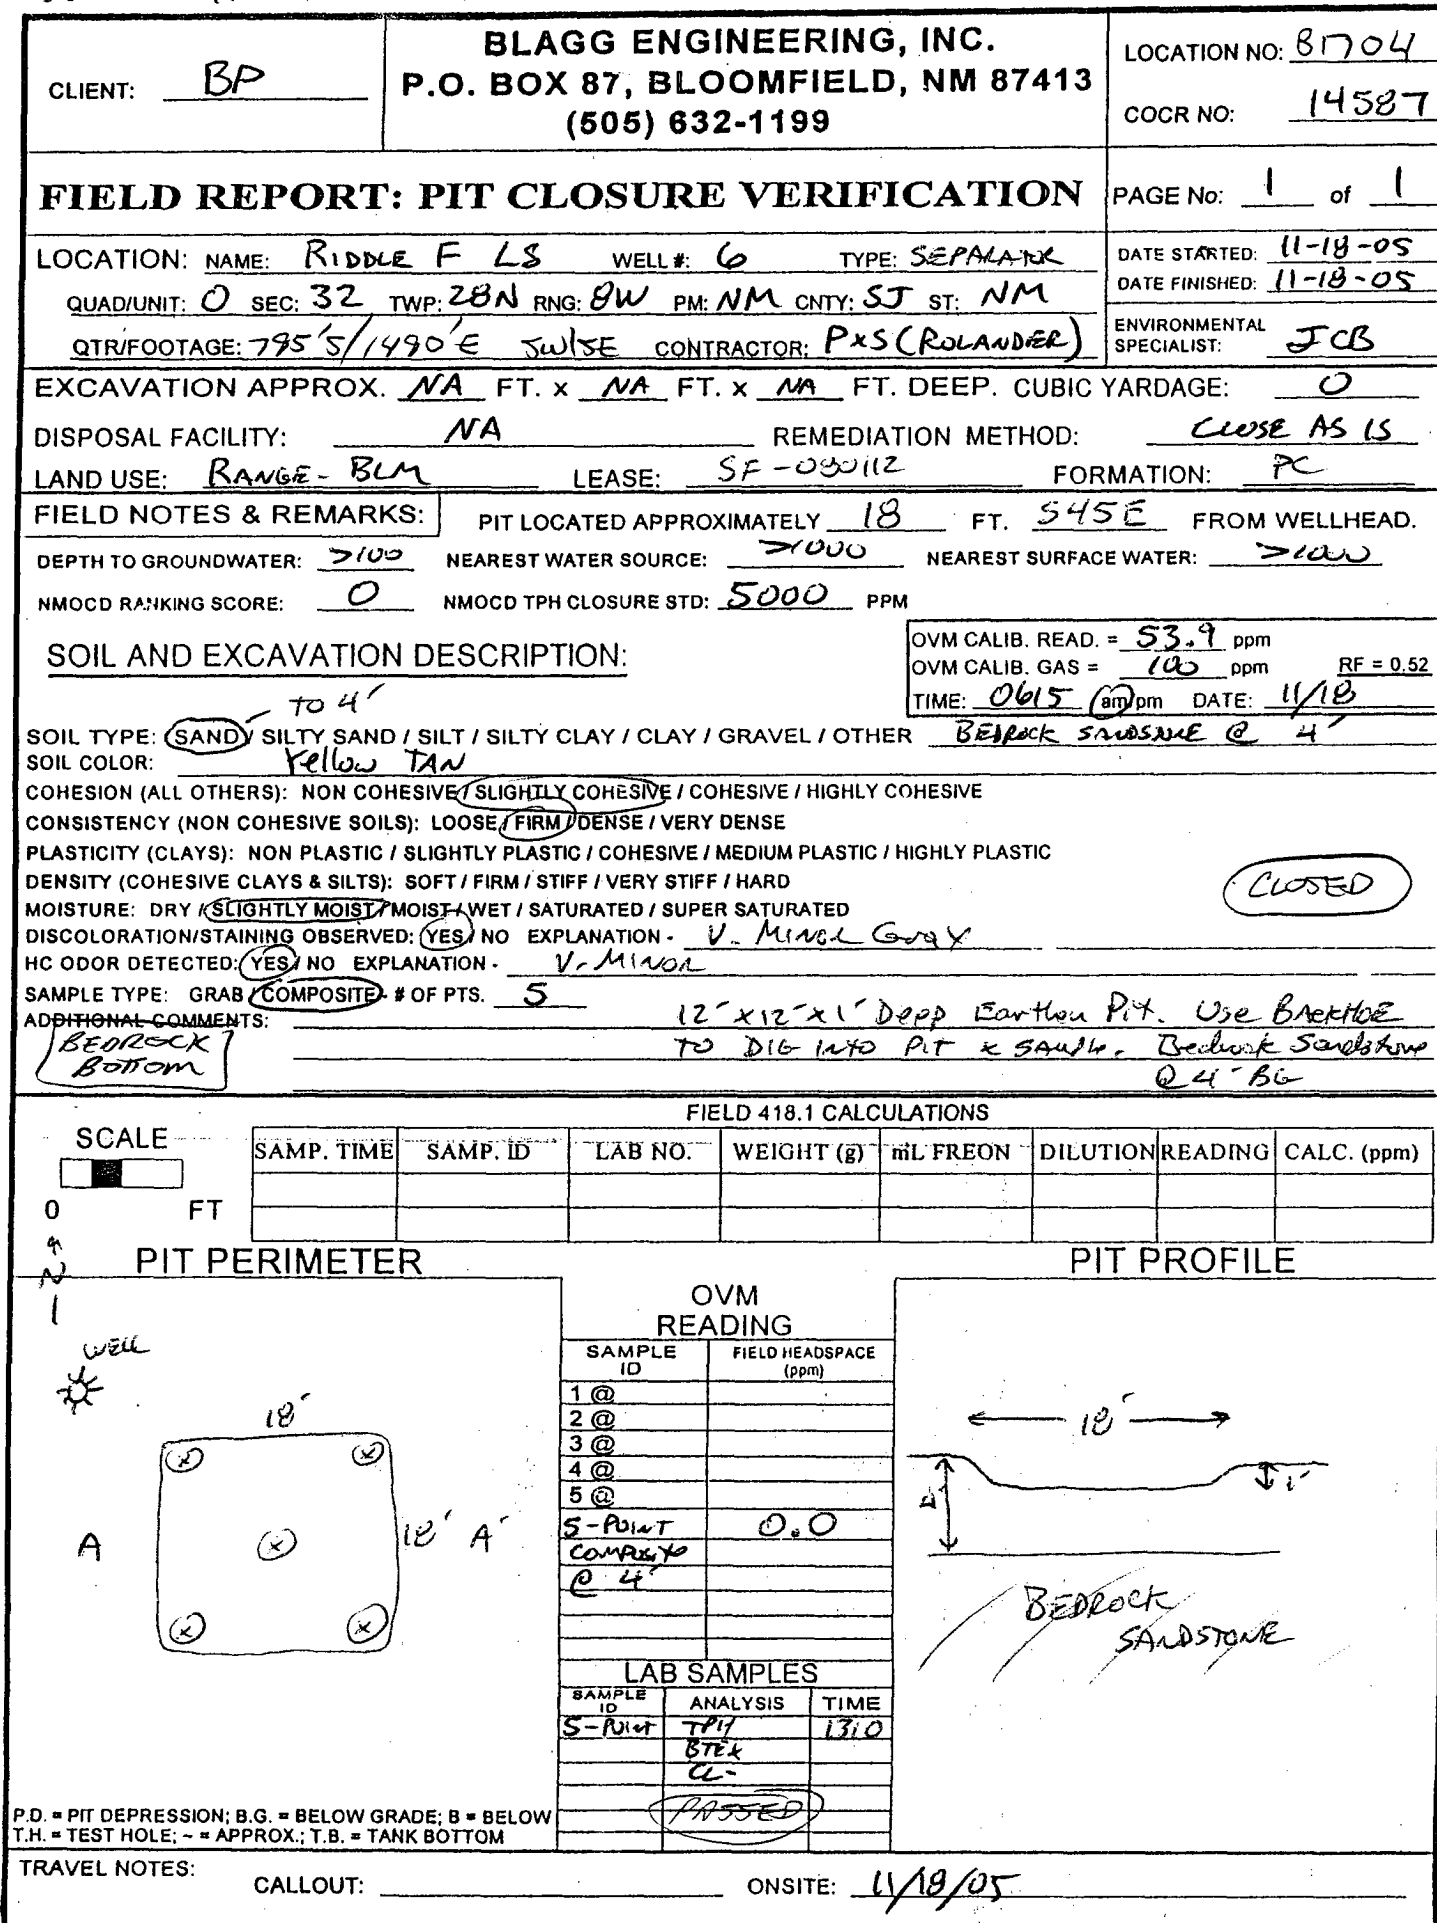 BLAGG ENGINEERING, INC.
CLIENT: BP
P.O. BOX 87, BLOOMFIELD, NM 87413
(505) 632-1199
LOCATION NO: 81704
COCR NO: 14587
FIELD REPORT: PIT CLOSURE VERIFICATION
PAGE No: 1 of 1
LOCATION: NAME: RIDDLE F LS WELL #: 6 TYPE: SEPARATOR
DATE STARTED: 11-18-05
DATE FINISHED: 11-18-05
QUAD/UNIT: O SEC: 32 TWP: 28N RNG: 8W PM: NM CNTY: SJ ST: NM
QTR/FOOTAGE: 795'S/1490'E SW/SE CONTRACTOR: P×S (ROLANDER)
ENVIRONMENTAL
SPECIALIST: JCB
EXCAVATION APPROX. NA FT. x NA FT. x NA FT. DEEP. CUBIC YARDAGE: 0
DISPOSAL FACILITY: NA REMEDIATION METHOD: CLOSE AS IS
LAND USE: RANGE - BLM LEASE: SF-080112 FORMATION: PC
FIELD NOTES & REMARKS: PIT LOCATED APPROXIMATELY 18 FT. S45E FROM WELLHEAD.
DEPTH TO GROUNDWATER: >100 NEAREST WATER SOURCE: >1000 NEAREST SURFACE WATER: >1000
NMOCD RANKING SCORE: 0 NMOCD TPH CLOSURE STD: 5000 PPM
SOIL AND EXCAVATION DESCRIPTION:
OVM CALIB. READ. = 53.9 ppm
OVM CALIB. GAS = 100 ppm RF = 0.52
TIME: 0615 am/pm DATE: 11/18
TO 4'
SOIL TYPE: SAND / SILTY SAND / SILT / SILTY CLAY / CLAY / GRAVEL / OTHER BEDROCK SANDSTONE @ 4'
SOIL COLOR: Yellow TAN
COHESION (ALL OTHERS): NON COHESIVE / SLIGHTLY COHESIVE / COHESIVE / HIGHLY COHESIVE
CONSISTENCY (NON COHESIVE SOILS): LOOSE / FIRM / DENSE / VERY DENSE
PLASTICITY (CLAYS): NON PLASTIC / SLIGHTLY PLASTIC / COHESIVE / MEDIUM PLASTIC / HIGHLY PLASTIC
DENSITY (COHESIVE CLAYS & SILTS): SOFT / FIRM / STIFF / VERY STIFF / HARD
CLOSED
MOISTURE: DRY / SLIGHTLY MOIST / MOIST / WET / SATURATED / SUPER SATURATED
DISCOLORATION/STAINING OBSERVED: YES / NO EXPLANATION - V. MINOR GRAY
HC ODOR DETECTED: YES / NO EXPLANATION - V. MINOR
SAMPLE TYPE: GRAB / COMPOSITE - # OF PTS. 5
ADDITIONAL COMMENTS: 12' x 12' x 1' Deep Earthen Pit. Use BACKHOE
TO DIG INTO PIT & SAMPLE. Bedrock Sandstone
@ 4' BG
BEDROCK
BOTTOM
FIELD 418.1 CALCULATIONS
SCALE
0 FT
SAMP. TIME SAMP. ID LAB NO. WEIGHT (g) mL FREON DILUTION READING CALC. (ppm)
N
PIT PERIMETER
PIT PROFILE
WELL
18'
A
18' A'
OVM
READING
SAMPLE ID FIELD HEADSPACE (ppm)
1 @
2 @
3 @
4 @
5 @
5-POINT 0.0
COMPOSITE
@ 4'
LAB SAMPLES
SAMPLE ID ANALYSIS TIME
5-POINT TPH 1310
BTEX
CL-
PASSED
18'
4'
1'
BEDROCK
SANDSTONE
P.D. = PIT DEPRESSION; B.G. = BELOW GRADE; B = BELOW
T.H. = TEST HOLE; ~ = APPROX.; T.B. = TANK BOTTOM
TRAVEL NOTES:
CALLOUT: ONSITE: 11/18/05